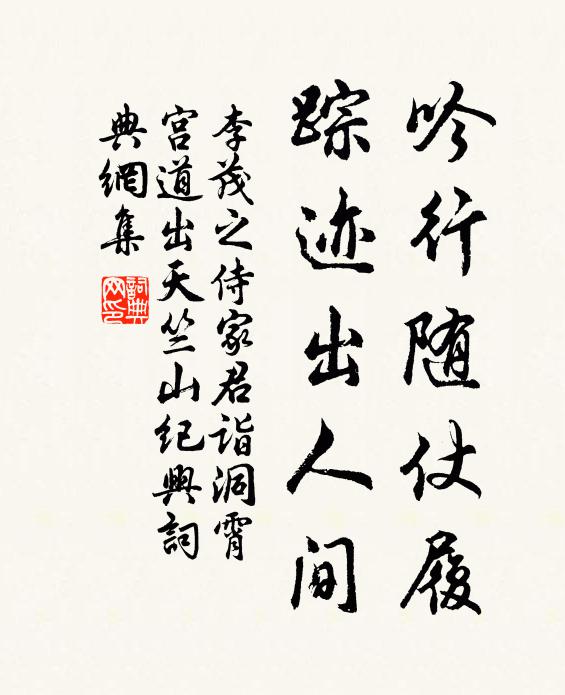 吟行随仗履
踪迹出人间
李茂之侍家君诣洞霄
宫道出天竺山纪興詞
典網集
詞典網印